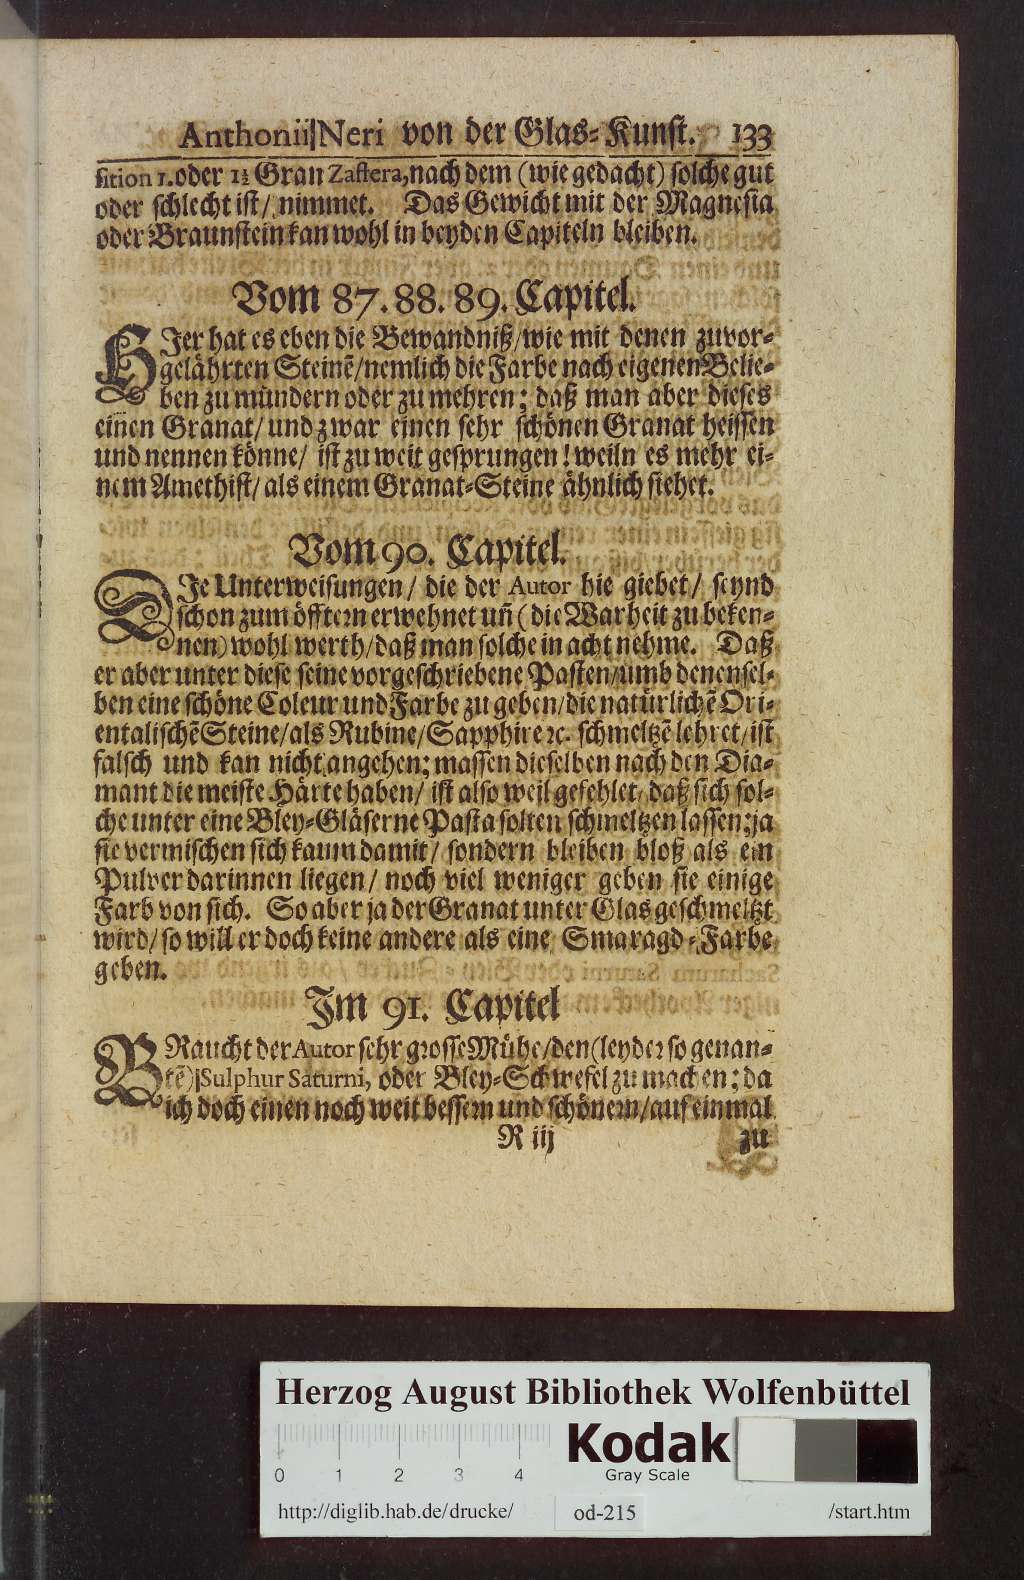 Anthonii Neri von der Glas-Kunst. 133
sition 1. oder 1½ Gran Zaffera, nach dem (wie gedacht) solche gut
oder schlecht ist/ nimmet. Das Gewicht mit der Magnesia
oder Braunstein kan wohl in beyden Capiteln bleiben.
Vom 87. 88. 89. Capitel.
HJer hat es eben die Bewandniß/ wie mit denen zuvor-
gelährten Steinē/ nemlich die Farbe nach eigenen Belie-
ben zu mündern oder zu mehren; daß man aber dieses
einen Granat/ und zwar einen sehr schönen Granat heissen
und nennen könne/ ist zu weit gesprungen! weiln es mehr ei-
nem Amethist/ als einem Granat-Steine ähnlich siehet.
Vom 90. Capitel.
DJe Unterweisungen/ die der Autor hie giebet/ seynd
schon zum öfftern erwehnet uñ (die Warheit zu beken-
nen) wohl werth/ daß man solche in acht nehme. Daß
er aber unter diese seine vorgeschriebene Pasten/ umb denensel-
ben eine schöne Coleur und Farbe zu geben/ die natürlichē Ori-
entalischē Steine/ als Rubine/ Sapphire ꝛc. schmeltzē lehret/ ist
falsch und kan nicht angehen; massen dieselben nach den Dia-
mant die meiste Härte haben/ ist also weil gefehlet, daß sich sol-
che unter eine Bley-Gläserne Pasta solten schmeltzen lassen; ja
sie vermischen sich kaum damit/ sondern bleiben bloß als ein
Pulver darinnen liegen/ noch viel weniger geben sie einige
Farb von sich. So aber ja der Granat unter Glas geschmeltzt
wird/ so will er doch keine andere als eine Smaragd-Farbe
geben.
Jm 91. Capitel
BRaucht der Autor sehr grosse Mühe/ den (leyder so genan-
tē) Sulphur Saturni, oder Bley-Schwefel zu machen; da
ich doch einen noch weit bessern und schönern/ auf einmal
R iij
zu
Herzog August Bibliothek Wolfenbüttel
Kodak
Gray Scale
0 1 2 3 4
http://diglib.hab.de/drucke/ od-215 /start.htm